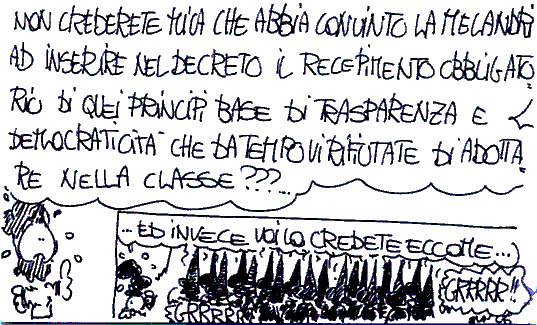 NON CREDERETE MICA CHE ABBIA CONVINTO LA MELANDRI
AD INSERIRE NEL DECRETO IL RECEPIMENTO OBBLIGATO
RIO DI QUEI PRINCIPI BASE DI TRASPARENZA E
DEMOCRATICITÀ CHE DA TEMPO VI RIFIUTATE DI ADOTTA
RE NELLA CLASSE???...
...ED INVECE VOI LO CREDETE ECCOME...
GRRRRR!!
GRRRRR